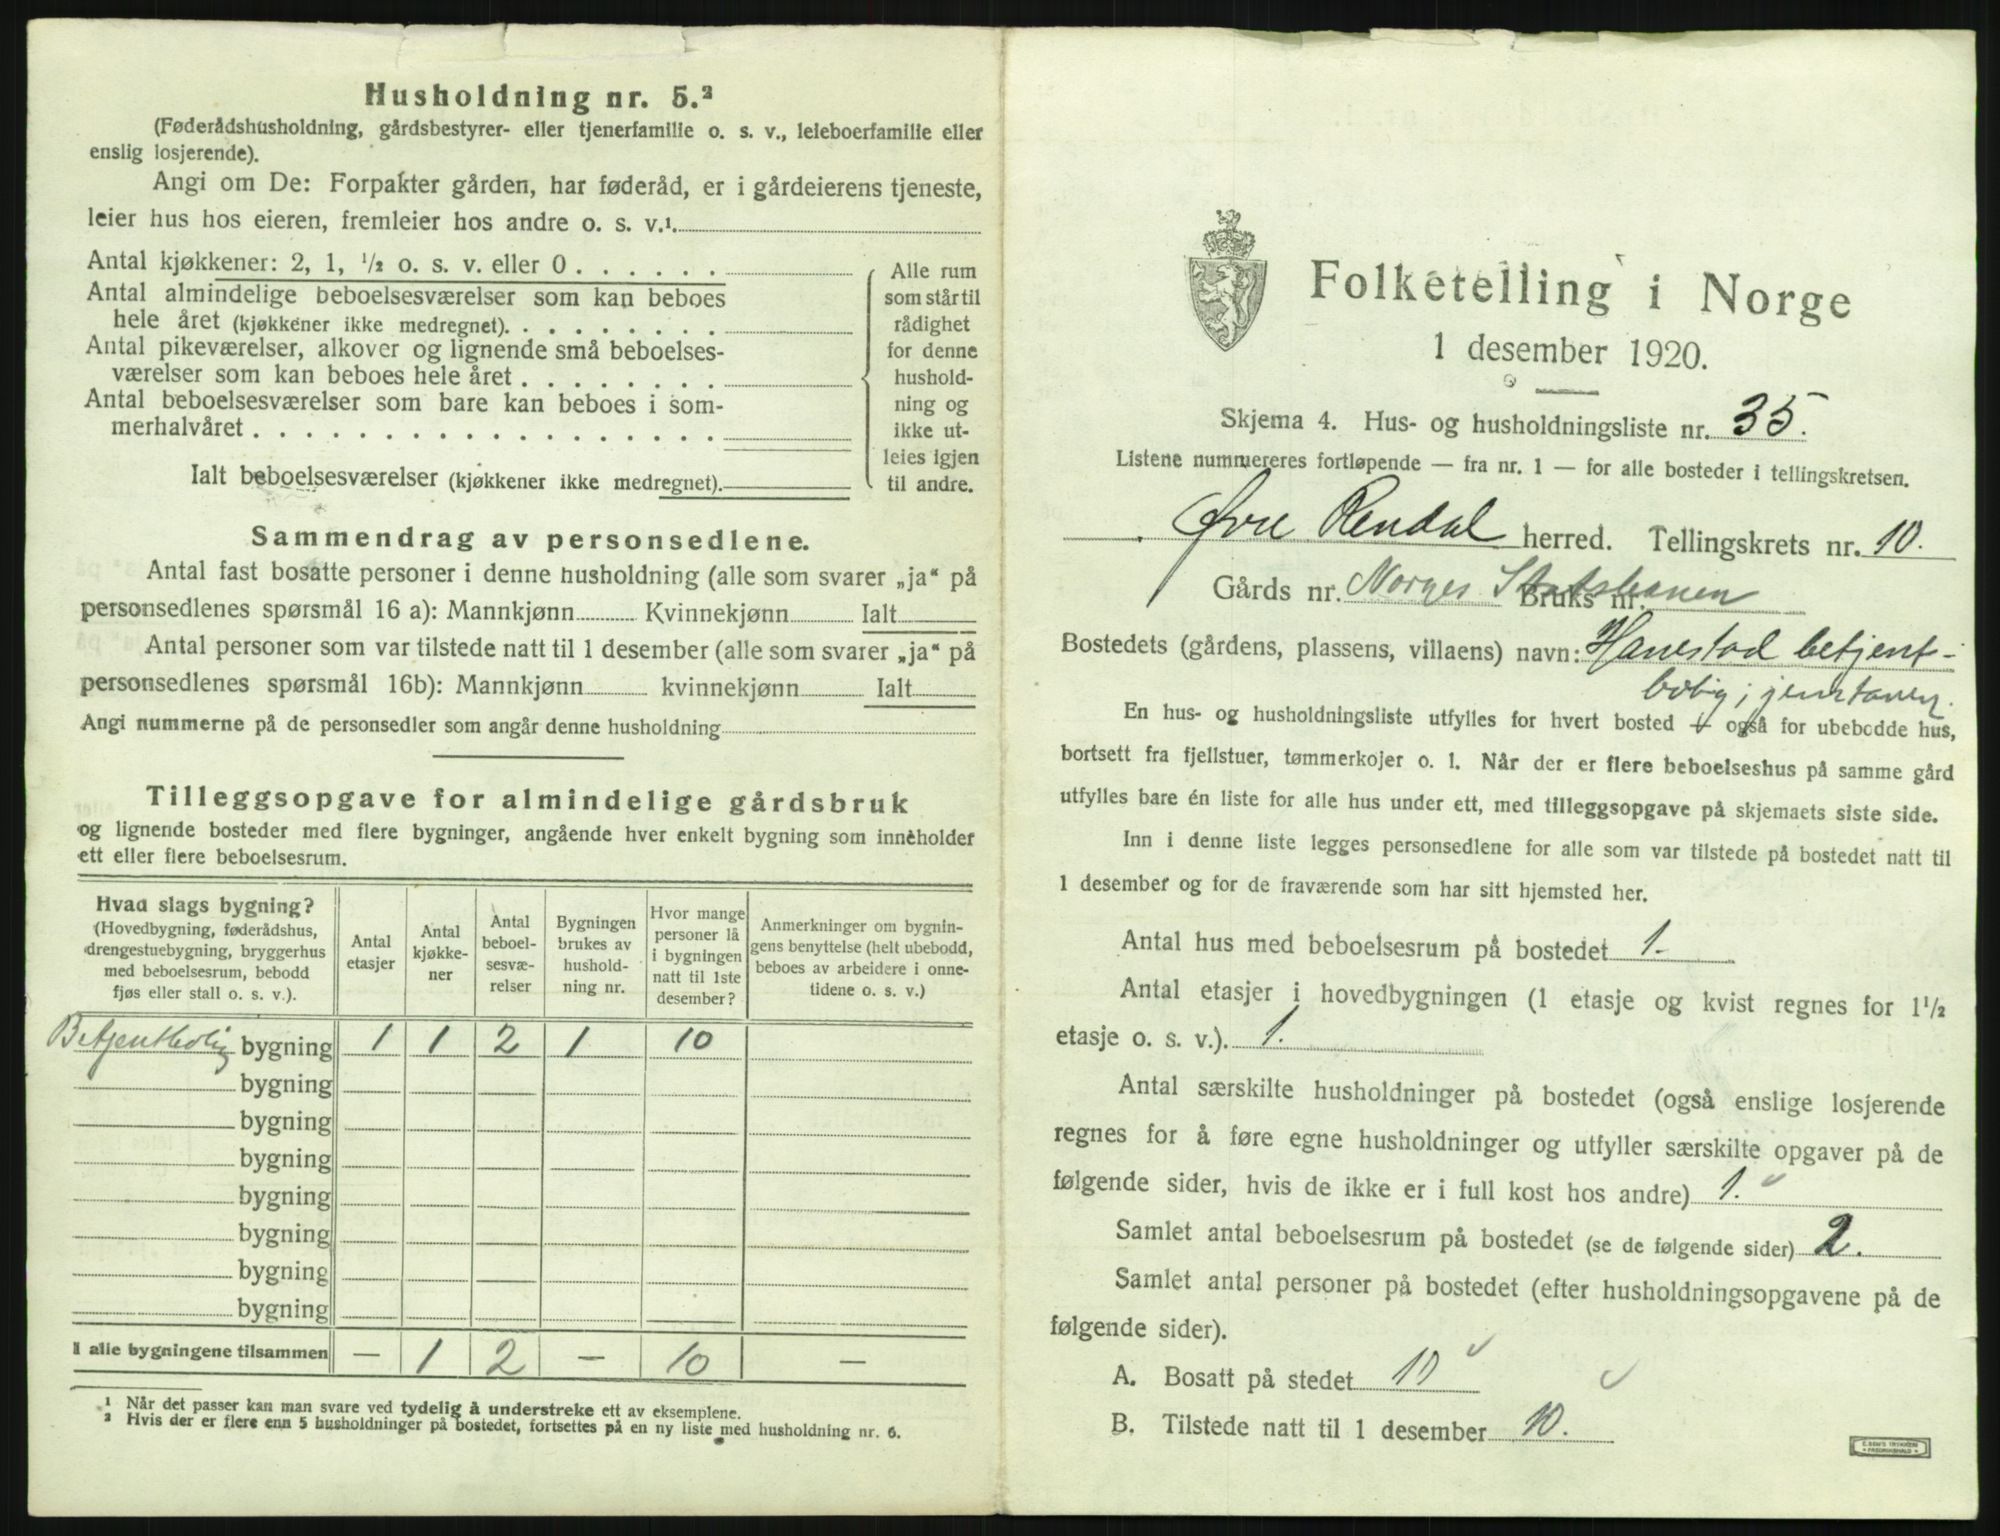 Husholdning nr. 5.²
(Føderådshusholdning, gårdsbestyrer- eller tjenerfamilie o. s. v., leieboerfamilie eller
enslig losjerende).
Angi om De: Forpakter gården, har føderåd, er i gårdeierens tjeneste,
leier hus hos eieren, fremleier hos andre o. s. v.¹.
Antal kjøkkener: 2, 1, ½ o. s. v. eller 0 . . . . . .
Antal almindelige beboelsesværelser som kan beboes
hele året (kjøkkener ikke medregnet). . . . . . . . .
Antal pikeværelser, alkover og lignende små beboelses-
værelser som kan beboes hele året . . . . . . . .
Antal beboelsesværelser som bare kan beboes i som-
merhalvåret . . . . . . . . . . . . . . . . . .
Ialt beboelsesværelser (kjøkkener ikke medregnet).
Alle rum
som står til
rådighet
for denne
hushold-
ning og
ikke ut-
leies igjen
til andre.
Sammendrag av personsedlene.
Antal fast bosatte personer i denne husholdning (alle som svarer „ja“ på
personsedlenes spørsmål 16 a): Mannkjønn Kvinnekjønn Ialt
Antal personer som var tilstede natt til 1 desember (alle som svarer „ja“ på
personsedlenes spørsmål 16b): Mannkjønn kvinnekjønn Ialt
Angi nummerne på de personsedler som angår denne husholdning
Tilleggsopgave for almindelige gårdsbruk
og lignende bosteder med flere bygninger, angående hver enkelt bygning som inneholder
ett eller flere beboelsesrum.
Hvad slags bygning?
(Hovedbygning, føderådshus,
drengestuebygning, bryggerhus
med beboelsesrum, bebodd
fjøs eller stall o. s. v.).
Antal
etasjer
Antal
kjøkke-
ner
Antal
beboel-
sesvæ-
relser
Bygningen
brukes av
hushold-
ning nr.
Hvor mange
personer lå
i bygningen
natt til 1ste
desember?
Anmerkninger om bygnin-
gens benyttelse (helt ubebodd,
beboes av arbeidere i onne-
tidene o. s. v.)
Betjentbolig bygning 1 1 2 1 10
bygning
bygning
bygning
bygning
bygning
bygning
bygning
I alle bygningene tilsammen — 1 2 — 10 —
¹ Når det passer kan man svare ved tydelig å understreke ett av eksemplene.
² Hvis der er flere enn 5 husholdninger på bostedet, fortsettes på en ny liste med husholdning nr. 6.
Folketelling i Norge
1 desember 1920.
Skjema 4. Hus- og husholdningsliste nr. 35.
Listene nummereres fortløpende — fra nr. 1 — for alle bosteder i tellingskretsen.
Øvre Rendal herred. Tellingskrets nr. 10.
Gårds nr. Norges Statsbanen Bruks nr.
Bostedets (gårdens, plassens, villaens) navn: Hanestad betjent-
bolig, jernbanen.
En hus- og husholdningsliste utfylles for hvert bosted — også for ubebodde hus,
bortsett fra fjellstuer, tømmerkojer o. l. Når der er flere beboelseshus på samme gård
utfylles bare én liste for alle hus under ett, med tilleggsopgave på skjemaets siste side.
Inn i denne liste legges personsedlene for alle som var tilstede på bostedet natt til
1 desember og for de fraværende som har sitt hjemsted her.
Antal hus med beboelsesrum på bostedet 1.
Antal etasjer i hovedbygningen (1 etasje og kvist regnes for 1½
etasje o. s. v.). 1.
Antal særskilte husholdninger på bostedet (også enslige losjerende
regnes for å føre egne husholdninger og utfyller særskilte opgaver på de
følgende sider, hvis de ikke er i full kost hos andre) 1.
Samlet antal beboelsesrum på bostedet (se de følgende sider) 2.
Samlet antal personer på bostedet (efter husholdningsopgavene på de
følgende sider).
A. Bosatt på stedet 10
B. Tilstede natt til 1 desember 10.